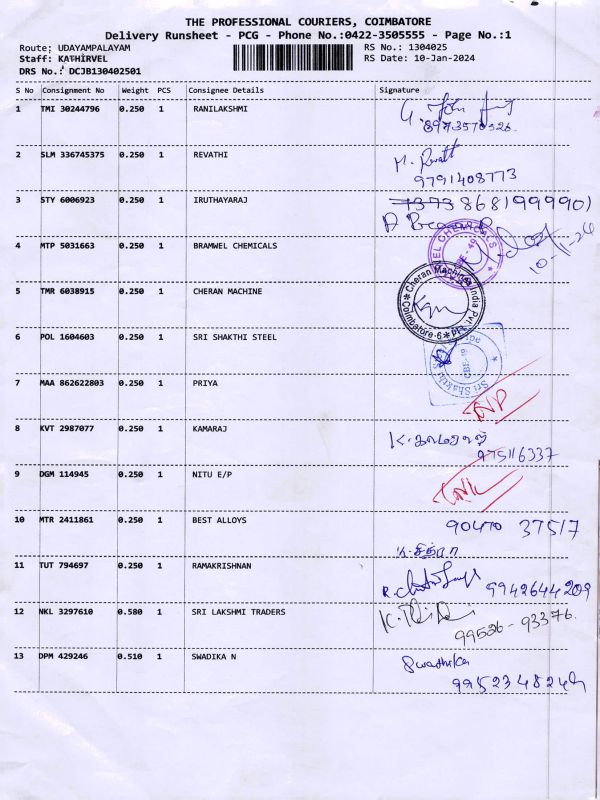 THE PROFESSIONAL COURIERS, COIMBATORE
Delivery Runsheet - PCG - Phone No.:0422-3505555 - Page No.:1
Route: UDAYAMPALAYAM RS No.: 1304025
Staff: KATHIRVEL RS Date: 10-Jan-2024
DRS No.: DCJB130402501
S No Consignment No Weight PCS Consignee Details Signature
1 TMI 30244796 0.250 1 RANILAKSHMI
2 SLM 336745375 0.250 1 REVATHI
9791408773
3 STY 6006923 0.250 1 IRUTHAYARAJ
4 MTP 5031663 0.250 1 BRAMWEL CHEMICALS
5 TMR 6038915 0.250 1 CHERAN MACHINE
Cheran Machines India Pvt Ltd
Coimbatore-6
6 POL 1604603 0.250 1 SRI SHAKTHI STEEL
7 MAA 862622803 0.250 1 PRIYA
8 KVT 2987077 0.250 1 KAMARAJ
K. காமராஜ்
9 DGM 114945 0.250 1 NITU E/P
10 MTR 2411861 0.250 1 BEST ALLOYS
11 TUT 794697 0.250 1 RAMAKRISHNAN
9942644209
12 NKL 3297610 0.580 1 SRI LAKSHMI TRADERS
99526-93376
13 DPM 429246 0.510 1 SWADIKA N
Swadhika